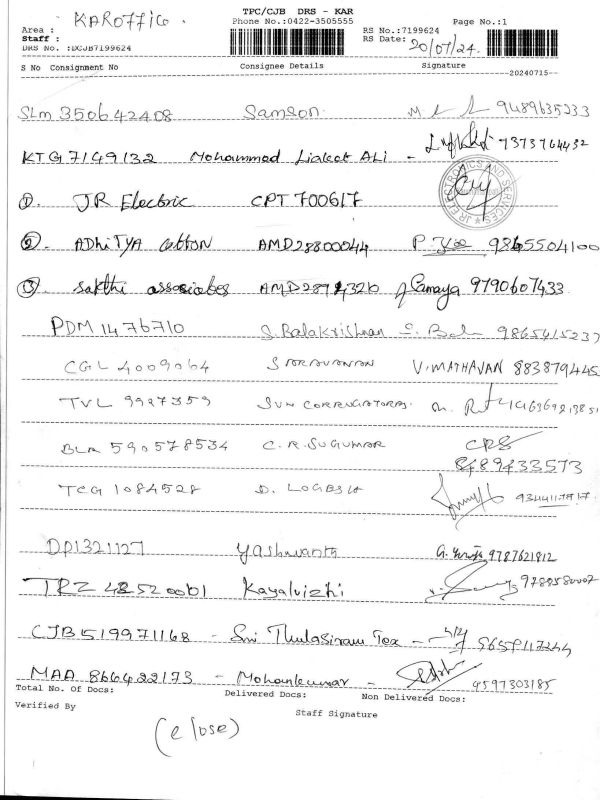 TPC/CJB DRS - KAR
KAROFFICO.
Phone No.:0422-3505555
Page No.:1
Area :
Staff :
DRS No. :DCJB7199624
RS No.:7199624
RS Date: 20/07/24.
S No Consignment No Consignee Details Signature
20240715
SLM 350642408 Samson. 9489635233
KTG 7149132 Mohammod Liakat ALi - 7373764432
① JR Electric CPT 700617
JR ELECTRONICS AND SERVICES
② ADhiTYA Cotton AMD28800044 9865504100
③ Sakthi associates 9790607433
PDM 1476710 S. Balakrishnan 9865415237
CGL 4009064 SARAVANAN V. MATHAVAN 883879445
TVL 9927359 SUN CORRUGATORS
BLR 590578534 C. R. SUGUMAR CRS
8489433573
TCG 1084528 D. LOGESH
DPI321127 Yashwanth 9787621812
TRZ Kayalvizhi 9788580007
CJB 519971168 - Sri Thulasiram Tex - 9659117244
MAA 866422173 - Mohankumar - 9597303185
Total No. Of Docs: Delivered Docs: Non Delivered Docs:
Verified By Staff Signature
(close)